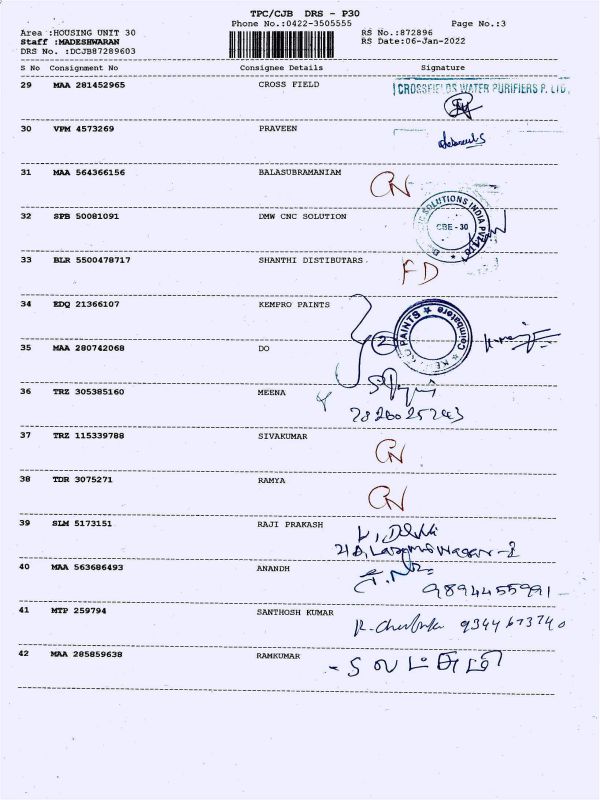 TPC/CJB DRS - P30
Phone No.:0422-3505555 Page No.:3
Area :HOUSING UNIT 30 RS No.:872896
Staff :MADESHWARAN RS Date:06-Jan-2022
DRS No. :DCJB87289603
S No Consignment No Consignee Details Signature
29 MAA 281452965 CROSS FIELD CROSSFIELDS WATER PURIFIERS P. LTD.
30 VPM 4573269 PRAVEEN
31 MAA 564366156 BALASUBRAMANIAM
32 SPB 50081091 DMW CNC SOLUTION SOLUTIONS INDIA PVT LTD CBE - 30
33 BLR 5500478717 SHANTHI DISTIBUTARS FD
34 EDQ 21366107 KEMPRO PAINTS PAINTS Coimbatore
35 MAA 280742068 DO 2
36 TRZ 305385160 MEENA
37 TRZ 115339788 SIVAKUMAR
38 TDR 3075271 RAMYA
39 SLM 5173151 RAJI PRAKASH
40 MAA 563686493 ANANDH
9894455991
41 MTP 259794 SANTHOSH KUMAR
42 MAA 285859638 RAMKUMAR